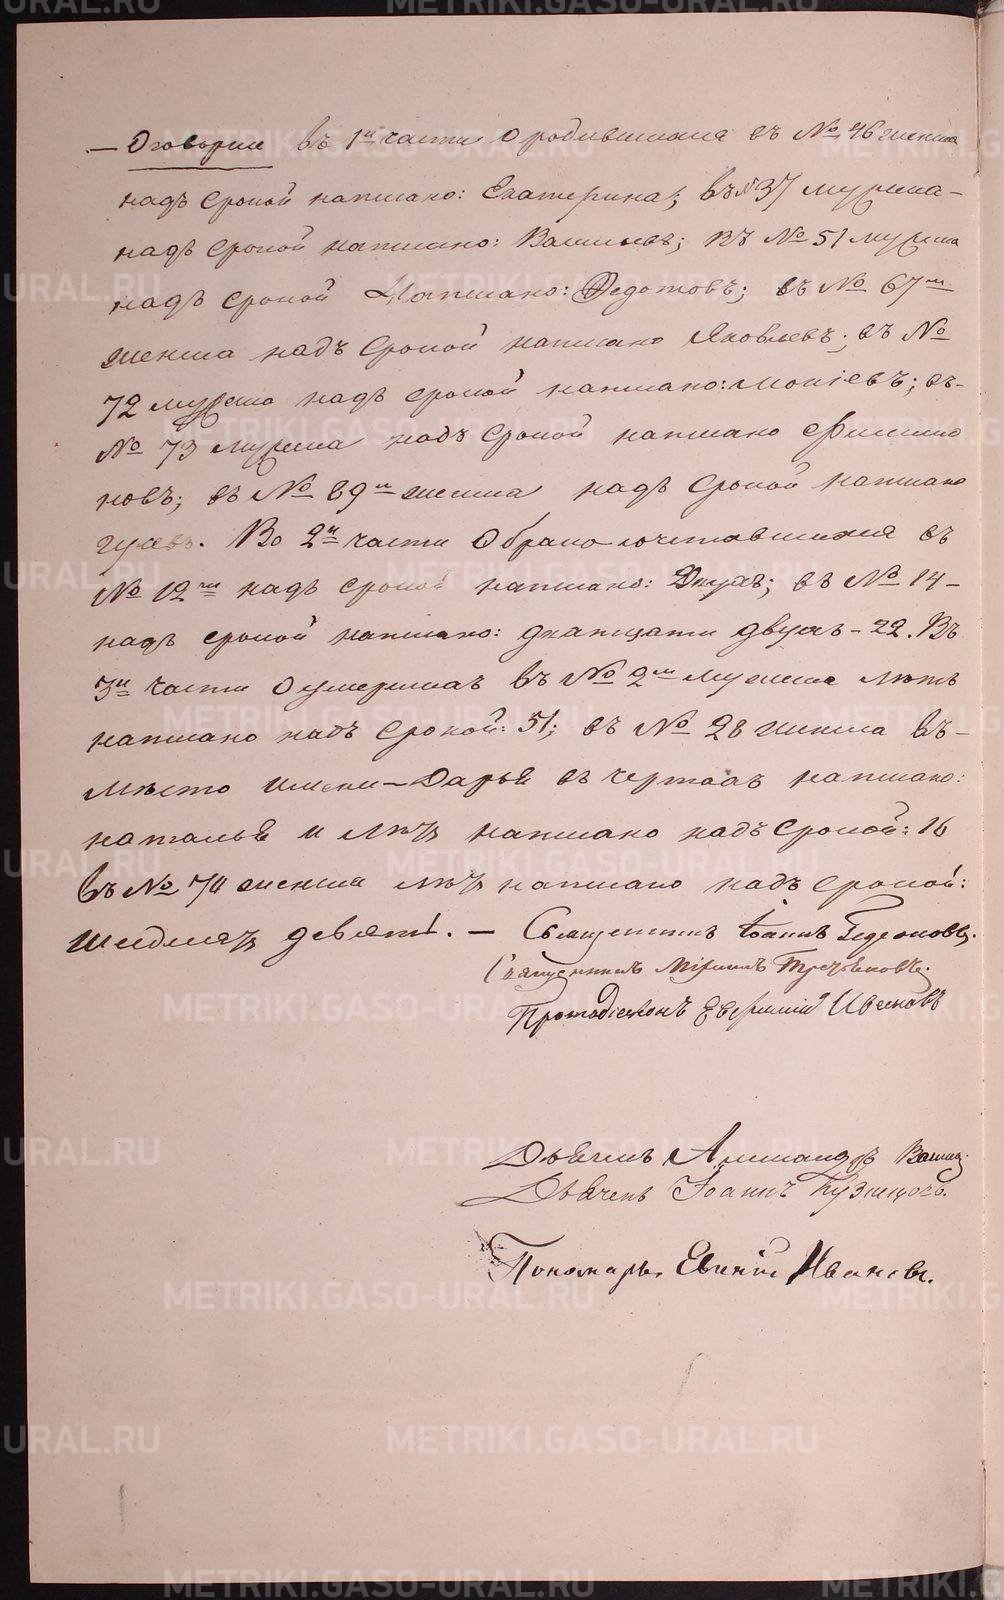 — Оговорки въ 1й части о родившихся въ № 46 женска
надъ срокой написано: Екатерина; въ № 37 мужска-
надъ срокой написано: Васильевъ; въ № 51 мужска
надъ срокой написано: Федотовъ; въ № 67м
женска надъ срокой написано Яковлевъ; въ №
72 мужска надъ срокой написано: Мокіевъ; въ-
№ 73 мужска надъ срокой написано Филимо
новъ; въ № 89м женска надъ срокой написано
. Во 2й части о бракосочетавшихся въ
№ 12м надъ срокой написано: Двухъ; въ № 14-
надъ срокой написано: дватцати двухъ - 22. Въ
3й части о умершихъ въ № 2м мужска лѣтъ
написано надъ срокой: 51; въ № 28 женска въ-
мѣсто имени - Дарья въ чертахъ написано:
наталья и лѣтъ написано надъ срокой: 16
въ № 70 женска лѣтъ написано надъ срокой:
девять. — Священникъ Іоаннъ
Священникъ
Протодіаконъ Евфимій Ивановъ
Дьячекъ Александръ
Дьячекъ Іоаннъ Кузнецовъ.
Пономарь Евгеній Ивановъ.
METRIKI.GASO-URAL.RU